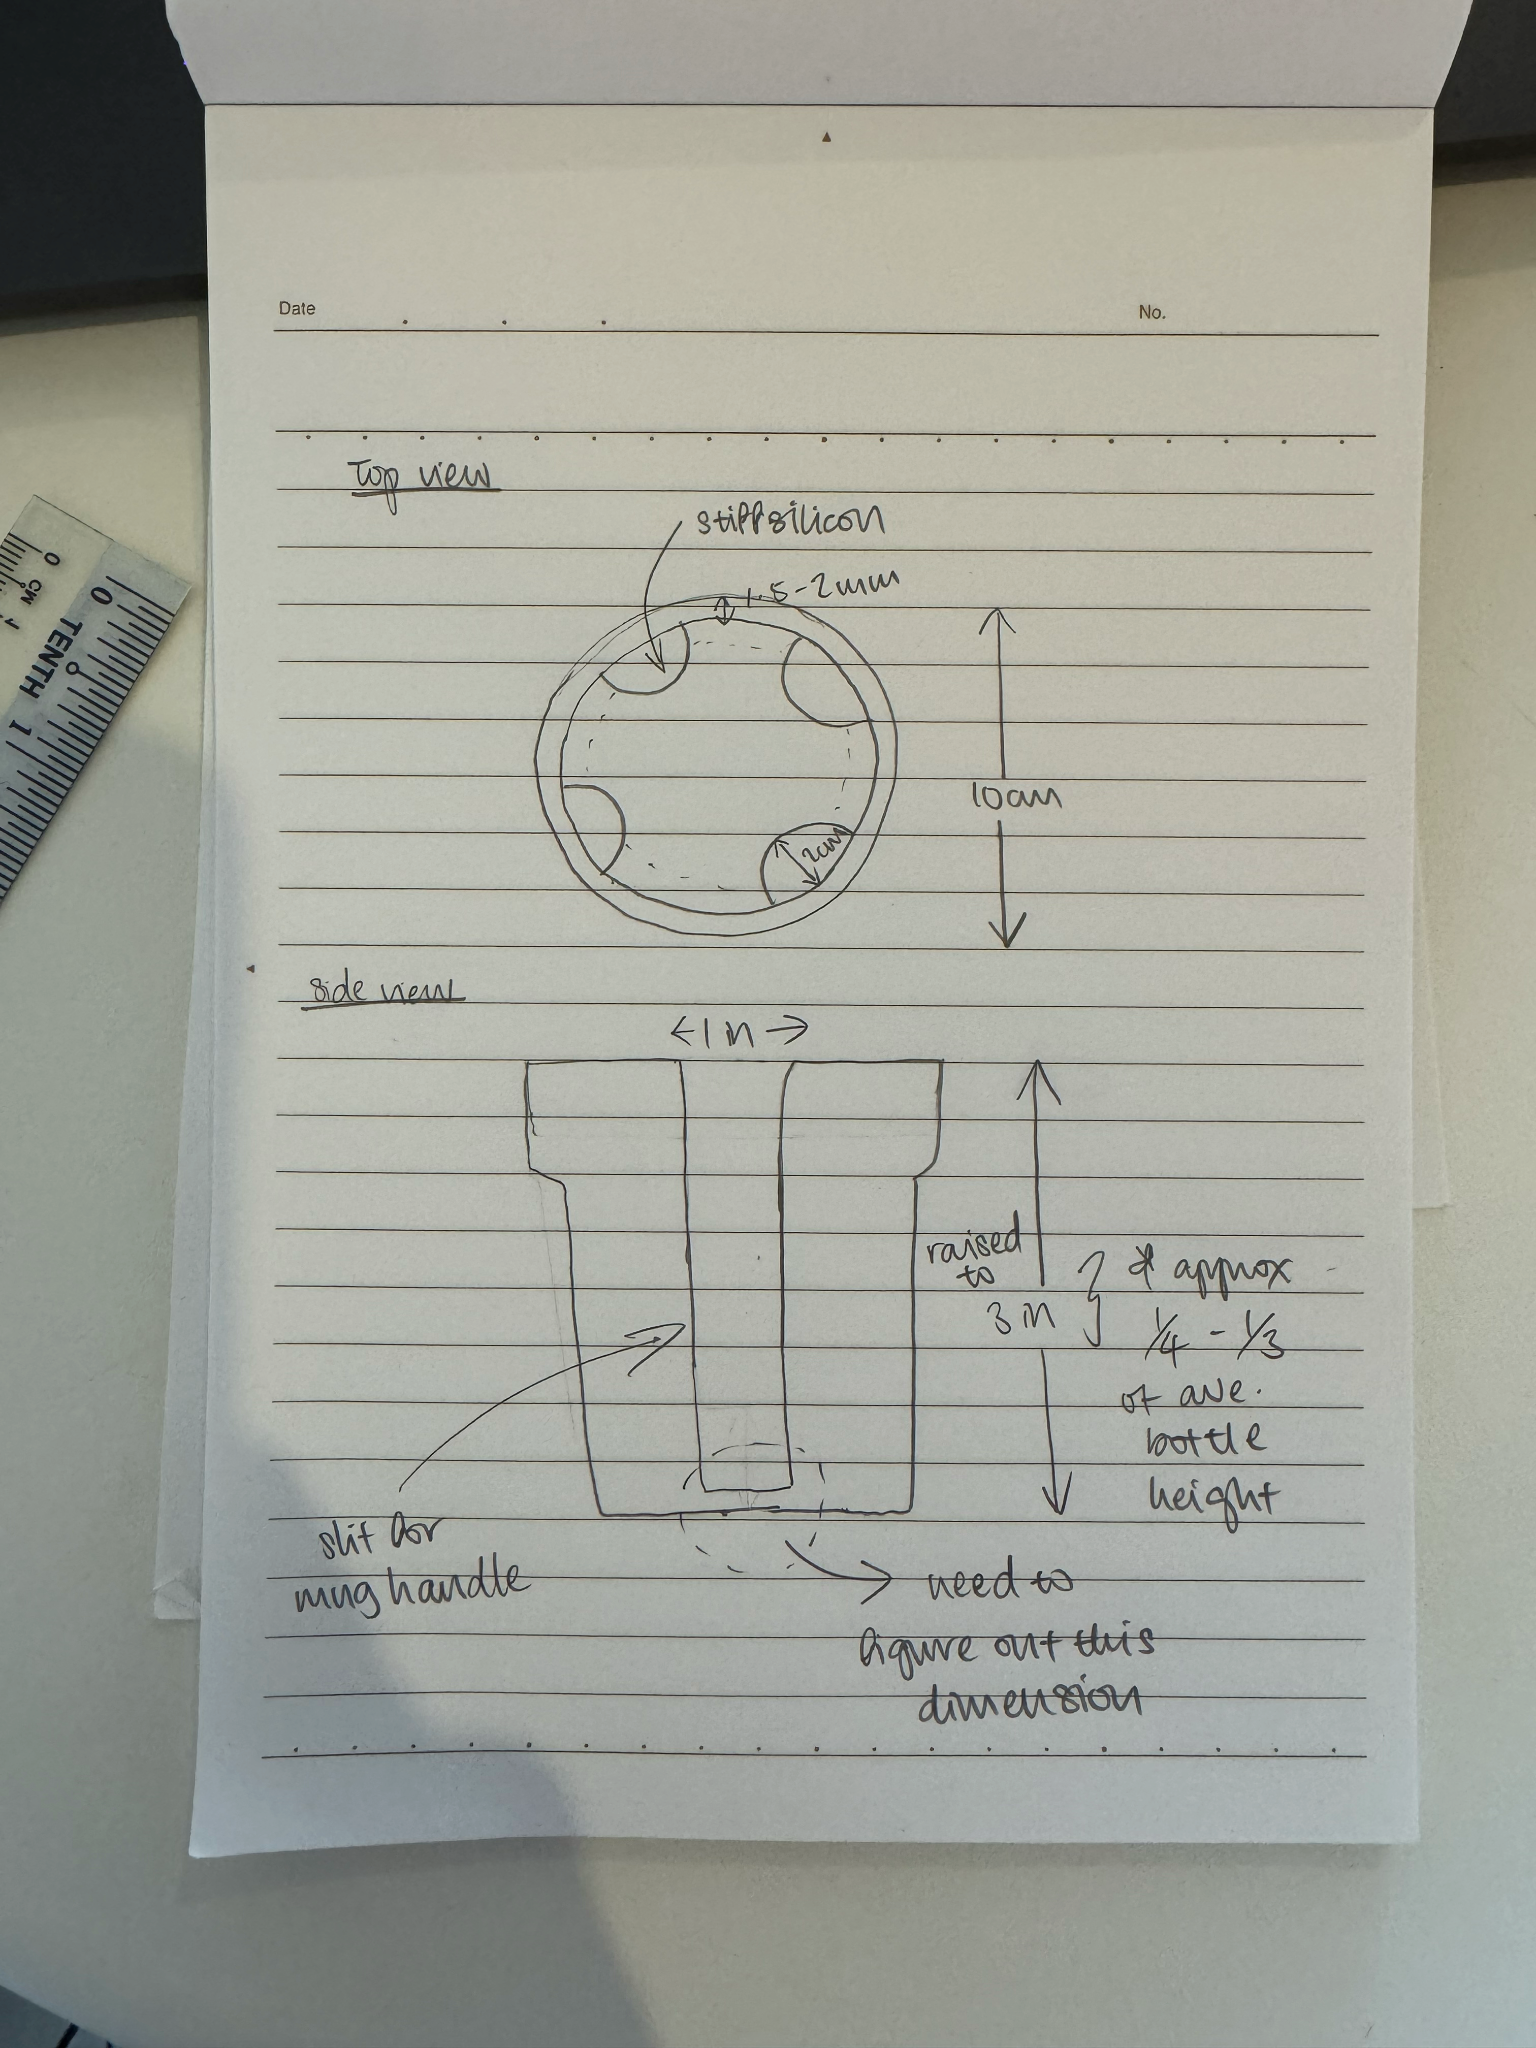 Date
No.
Top view
stiff silicon
1.5-2mm
10cm
2cm
side view
1 in
raised
to
3 in
* approx
1/4 - 1/3
of ave.
bottle
height
slit for
mug handle
need to
figure out this
dimension
0
CM
1
0
TENTH
1